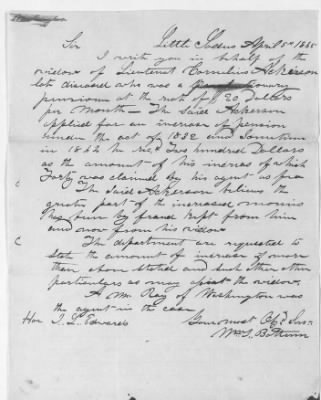 Little Sodus April 5th 18
Sir
I write you in behalf of the
widow of Lieutenant Cornelius Ackerson
late deceased who was a
pensioner at the rate of 20 Dollars
per Month — The said Ackerson
applied for an increase of pension
under the act of 1832 and sometime
in 1832 he recd Two hundred Dollars
as the amount of his increas of which
Forty was claimed by his agent as fea
The said Ackerson believes the
greater part of the increased monies
has been by fraud kept from him
and now from his widow.
The department are requested to
state the amount of increase if more
than above stated and such other
particulars as may assist the widow.
A Mr Ray of Washington was
the agent in the case
Hon J. L. Edwards
Your most Obt Servt
Wm